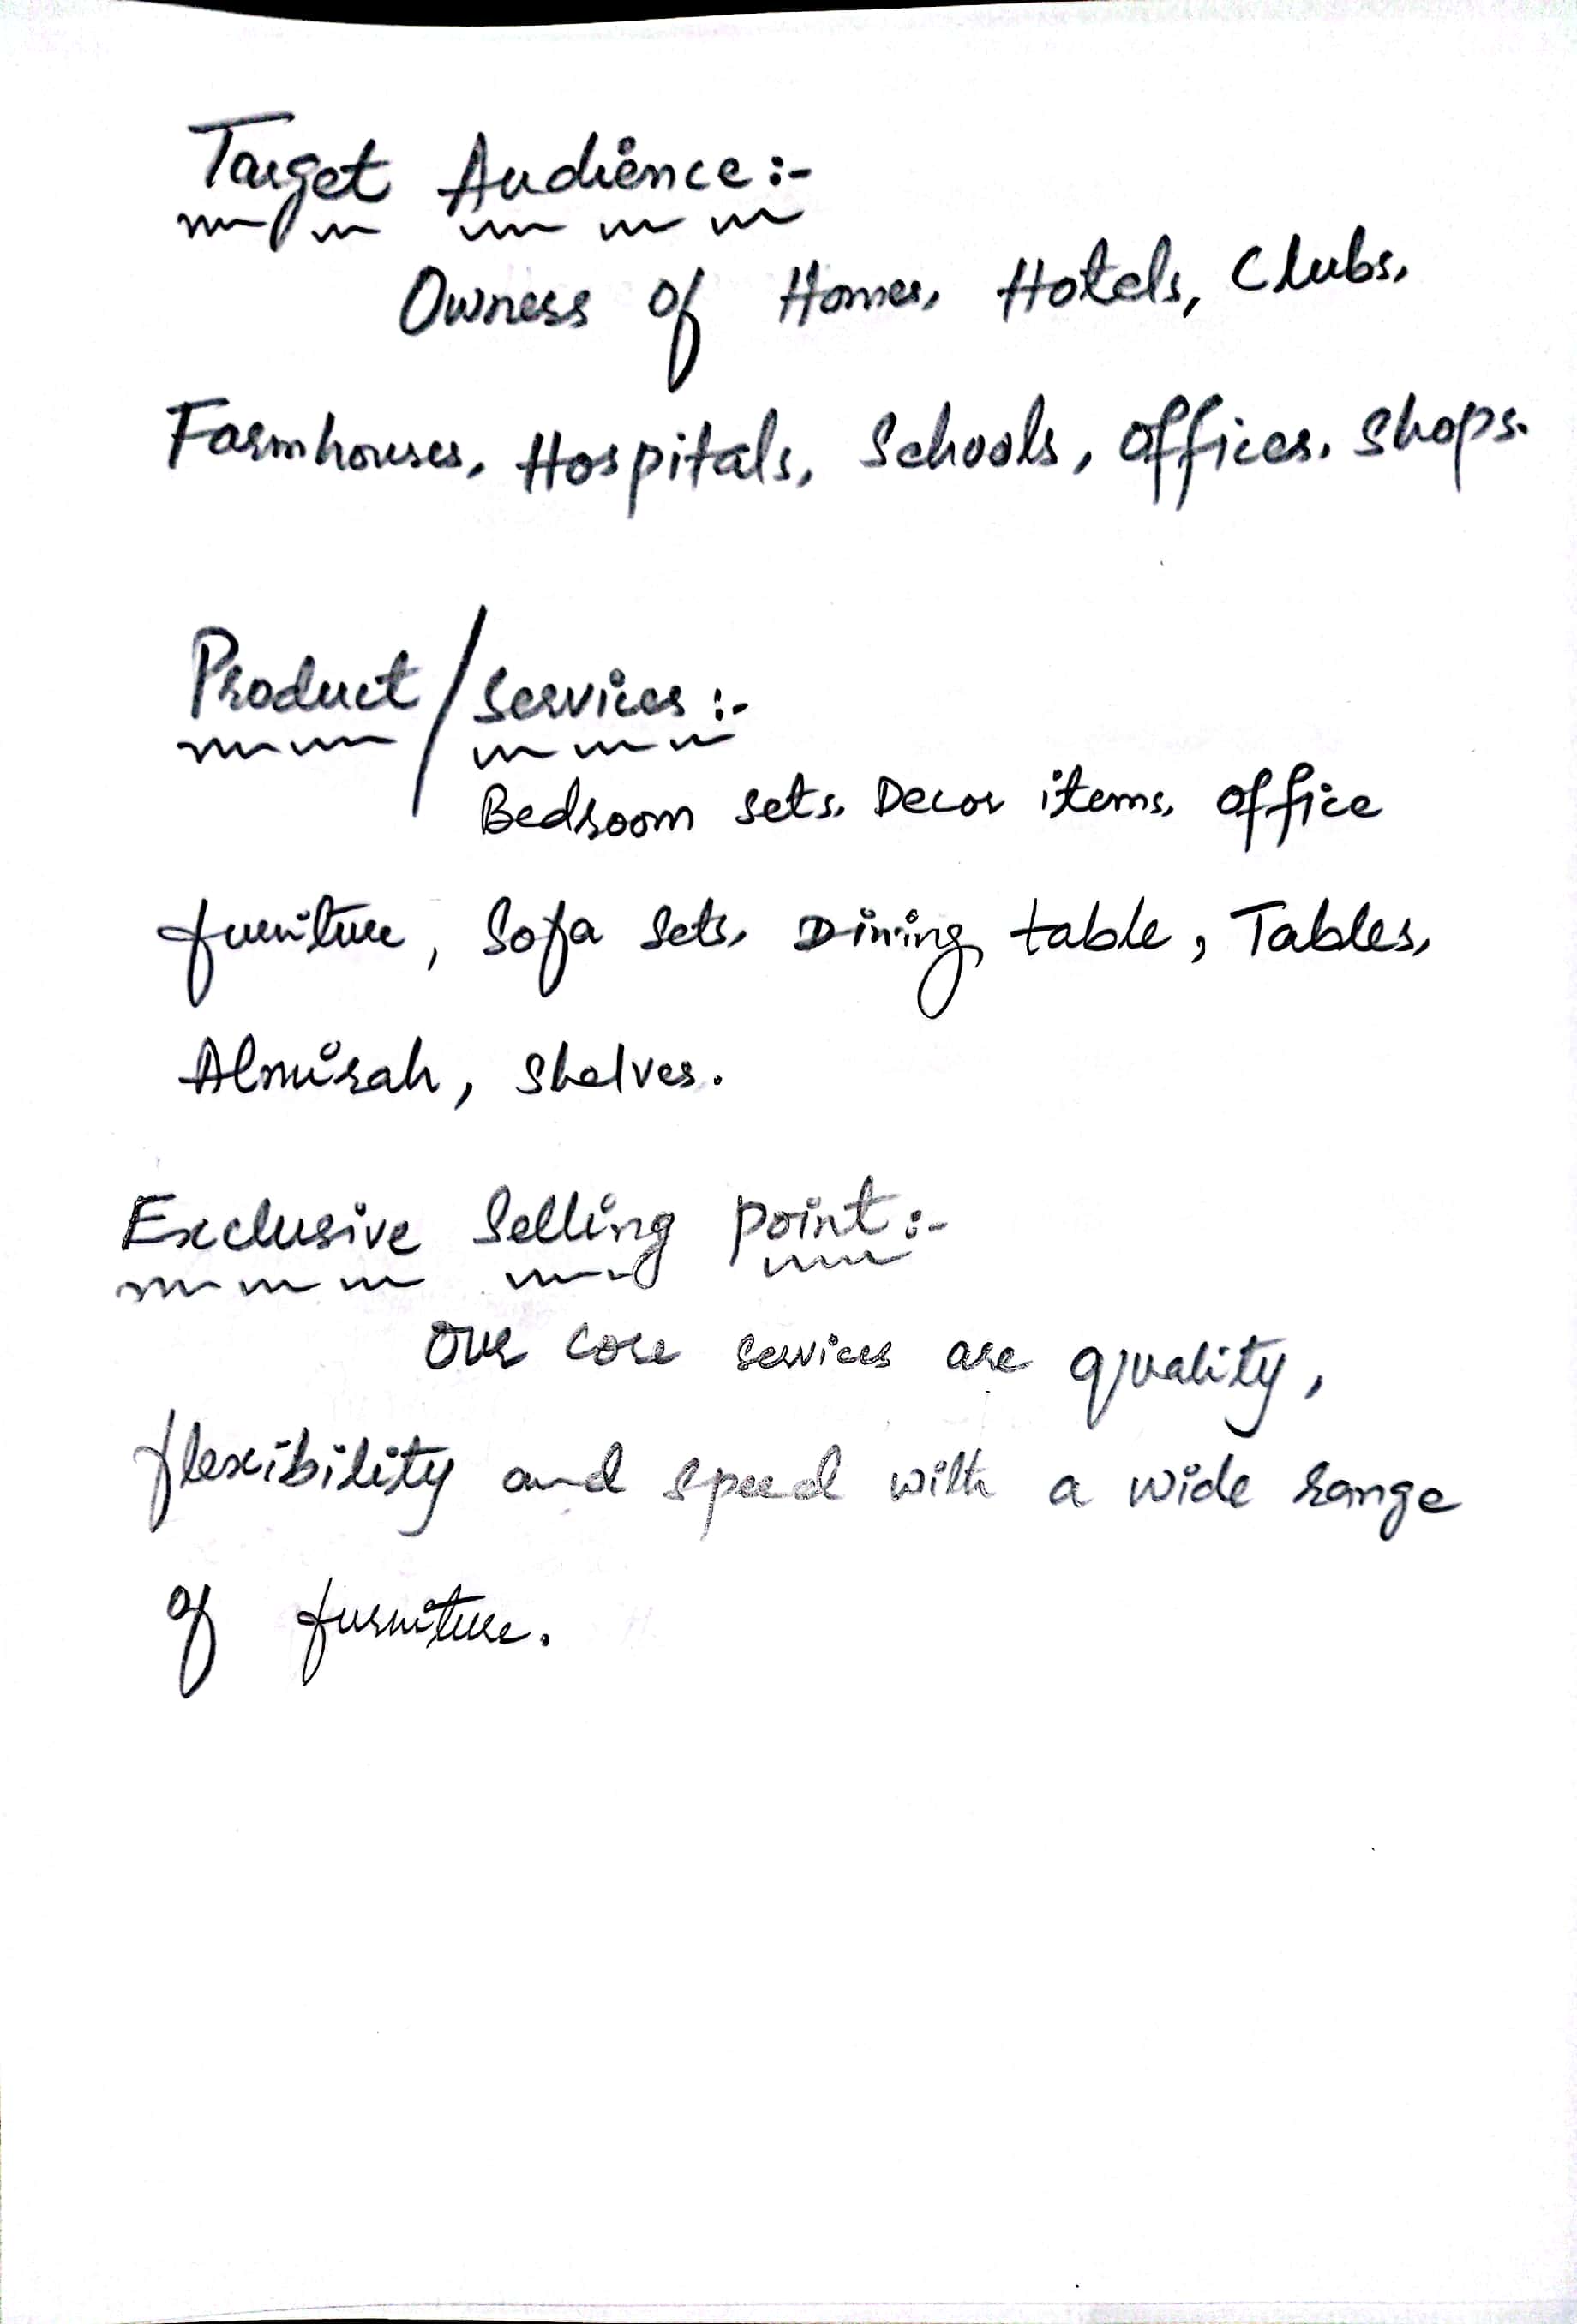 Target Audience :-
Owners of Homes, Hotels, Clubs,
Farmhouses, Hospitals, Schools, Offices, Shops.
Product / Services :-
Bedroom sets, Decor items, Office
furniture, Sofa Sets, Dining table, Tables,
Almirah, Shelves.
Exclusive Selling Point :-
Our core services are quality,
flexibility and speed with a wide range
of furniture.